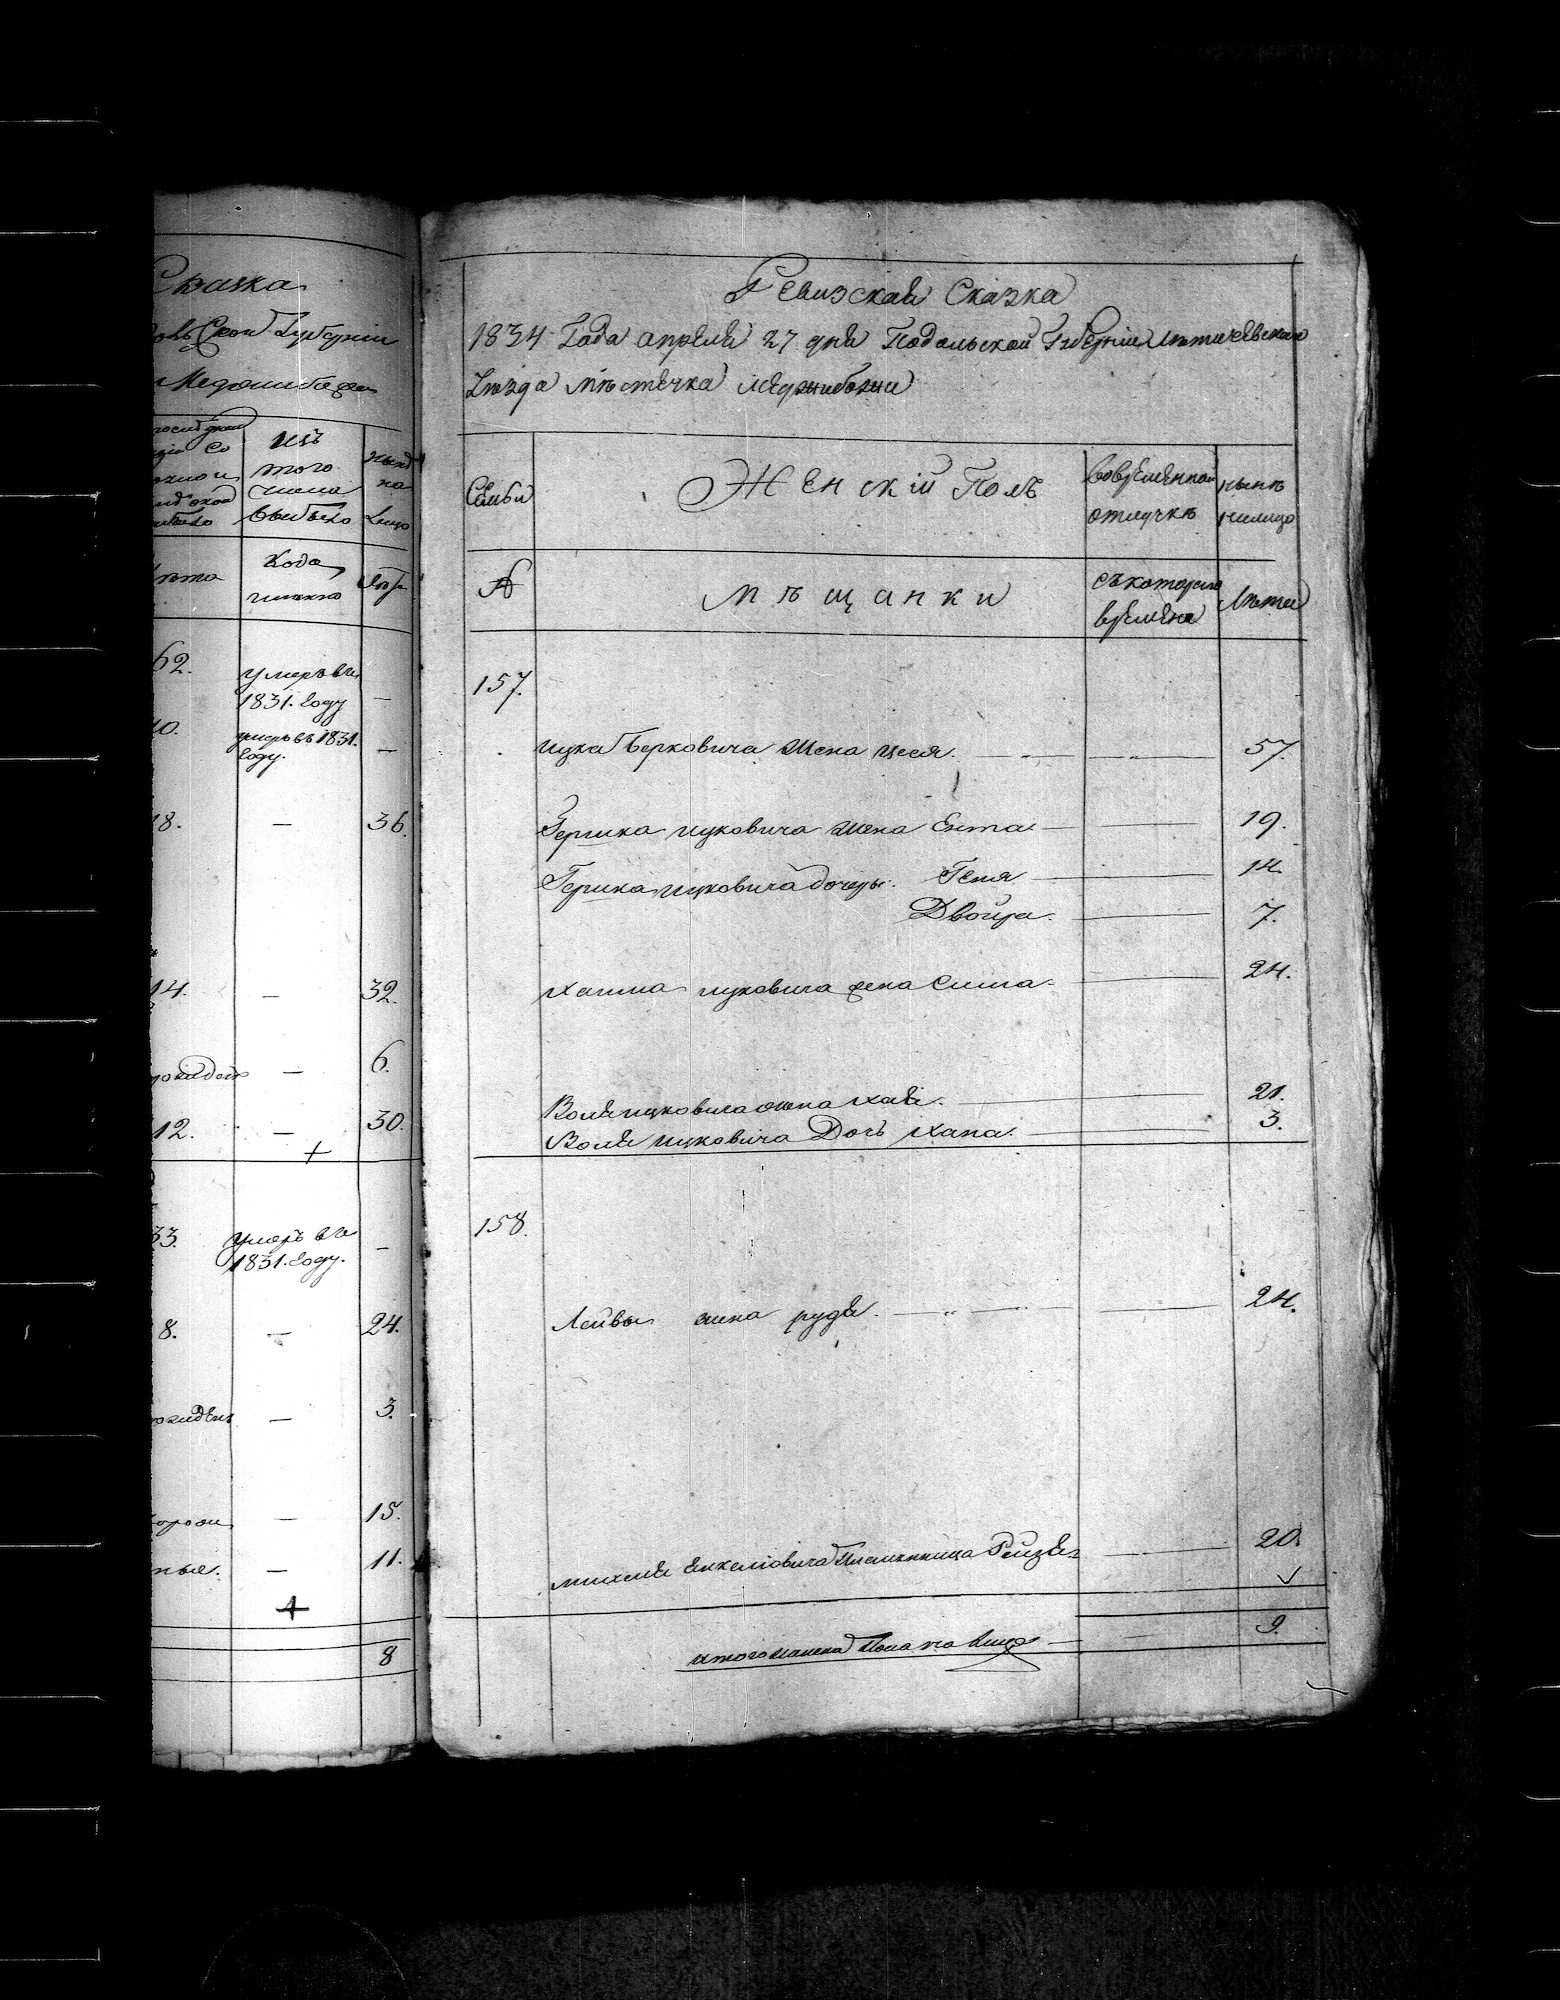 Сказка
Губернии
Меджибожа
изъ
того
числа
выбыло
ныне
на
лицо
Лета
Когда
именно
Лет
62.
умеръ въ
1831. году
—
умеръ въ 1831.
году.
—
18.
—
36.
14.
—
32.
—
6.
12.
—
30.
33.
умеръ въ
1831. году.
—
8.
—
24.
—
3.
—
15.
—
11.
8
Ревизская Сказка
1834 Года апреля 27 дня Подольской Губернии Летичевскаго
Уезда местечка Меджибожи
Семьи
Женскій Полъ
Во временной
отлучке
ныне
налицо
№
Мещанки
съ котораго
времени
Лета
157.
Ицка Берковича жена Цеся.
57.
Гершка Ицковича жена Ента
19.
Гершка Ицковича дочеры: Геня
14.
Двойра.
7.
Хаима Ицковича жена Сима.
24.
Воля Ицковича жена Хая.
21.
Воля Ицковича Дочь Хана.
3.
158.
Лейбы жена Рудя.
24.
Михеля Янкелiовича Племянница Рейзя
20.
Итого женска пола на лицо
9.